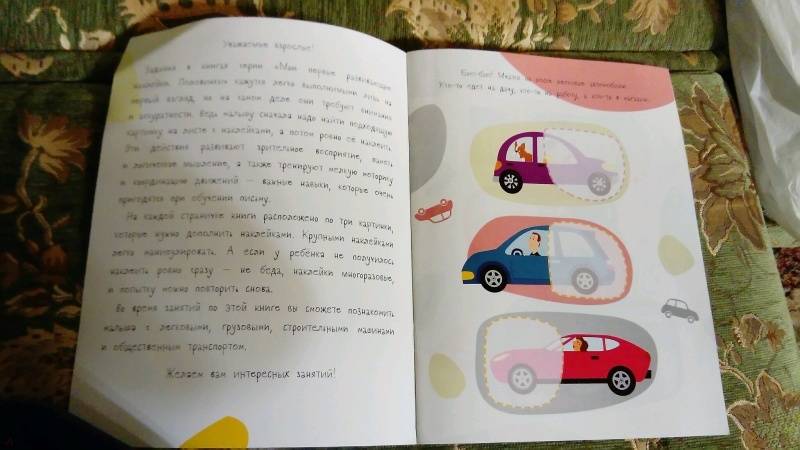 Уважаемые взрослые!
Задания в книгах серии «Мои первые развивающие
наклейки. Половинки» кажутся легко выполнимыми лишь на
первый взгляд, но на самом деле они требуют внимания
и аккуратности. Ведь малышу сначала надо найти подходящую
картинку на листе с наклейками, а потом ровно её наклеить.
Эти действия развивают зрительное восприятие, память
и логическое мышление, а также тренируют мелкую моторику
и координацию движений — важные навыки, которые очень
пригодятся при обучении письму.
На каждой страничке книги расположено по три картинки,
которые нужно дополнить наклейками. Крупными наклейками
легко манипулировать. А если у ребёнка не получилось
наклеить ровно сразу — не беда, наклейки многоразовые,
и попытку можно повторить снова.
Во время занятий по этой книге вы сможете познакомить
малыша с легковыми, грузовыми, строительными машинами
и общественным транспортом.
Желаем вам интересных занятий!
Бип-бип! Мчатся по дороге легковые автомобили.
Кто-то едет на дачу, кто-то на работу, а кто-то в магазин.